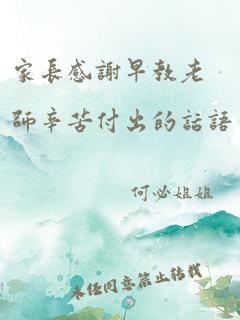 家長感謝早教老
師辛苦付出的話語
何必姐姐
未经同意禁止转载